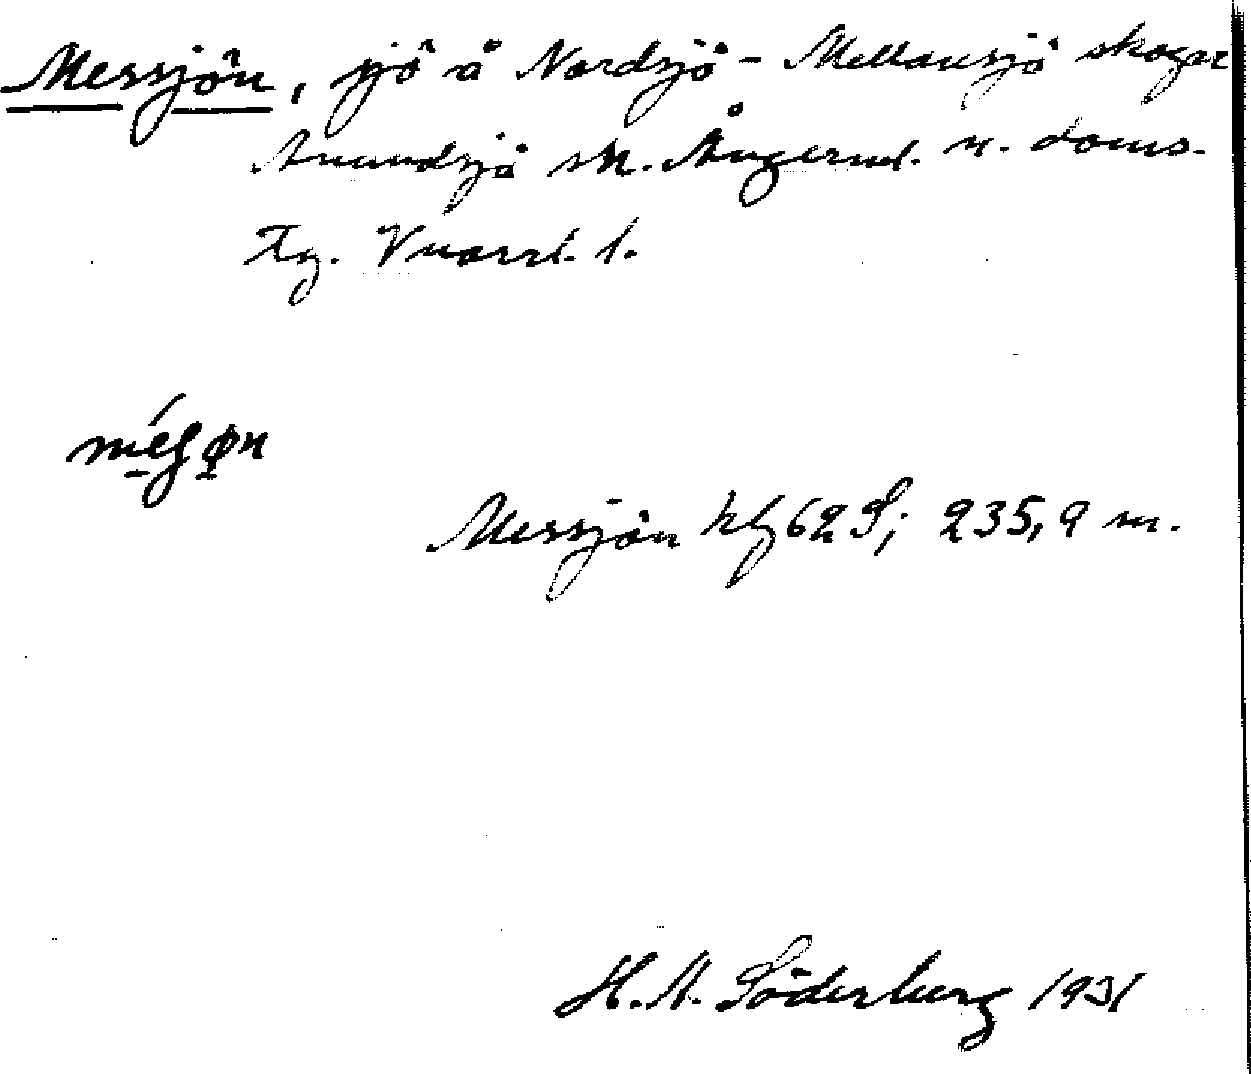 Messjön, sjö å Nordsjö - Mellansjö skogar
Anundsjö sn. Ångerml. n. doms.
Tg. Vnorrl. l.
Messjön 62 S; 235,9 m.
H. A. Söderberg 1931